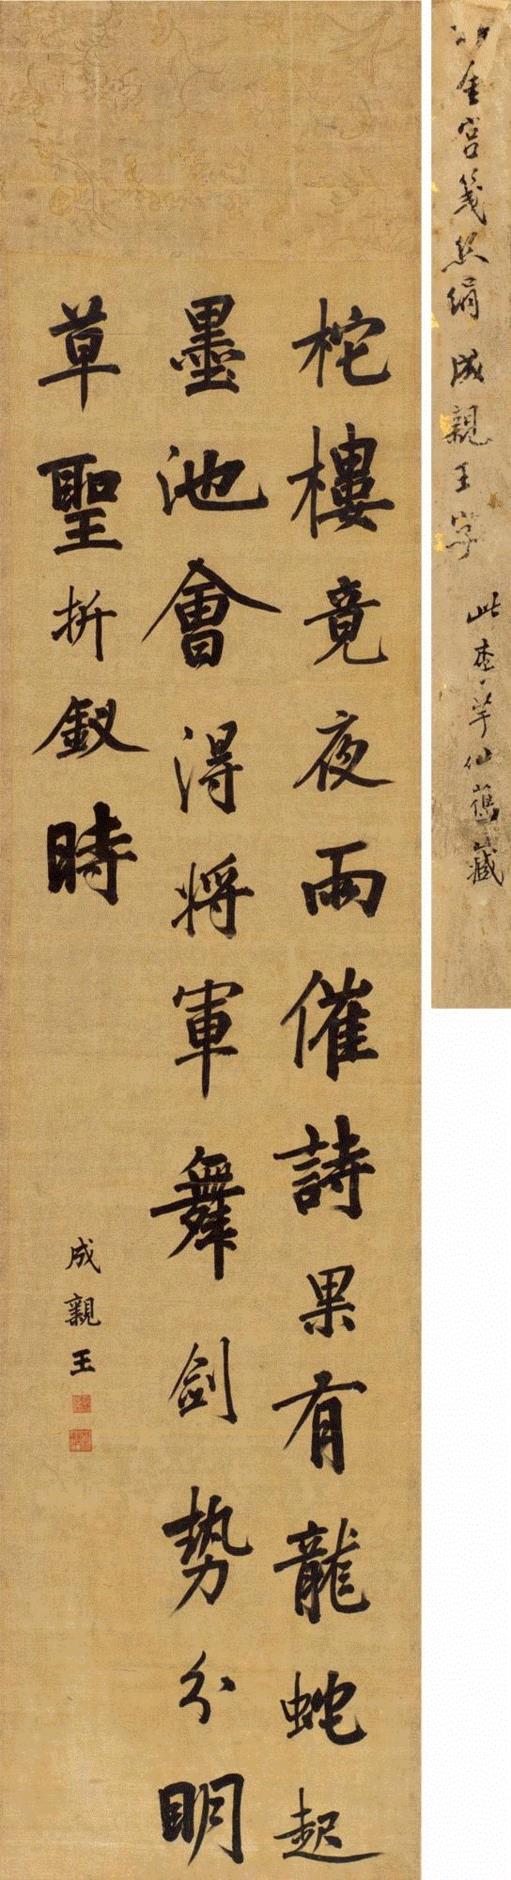 柁樓竟夜雨催詩果有龍蛇起
墨池會淂将軍舞劍势分明
草聖折釵時
成親王
金宮箋絹 成親王字
此李芋仙舊藏